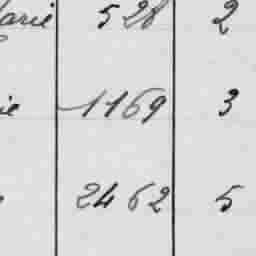 arie 528 2
ie 1169 3
2462 5